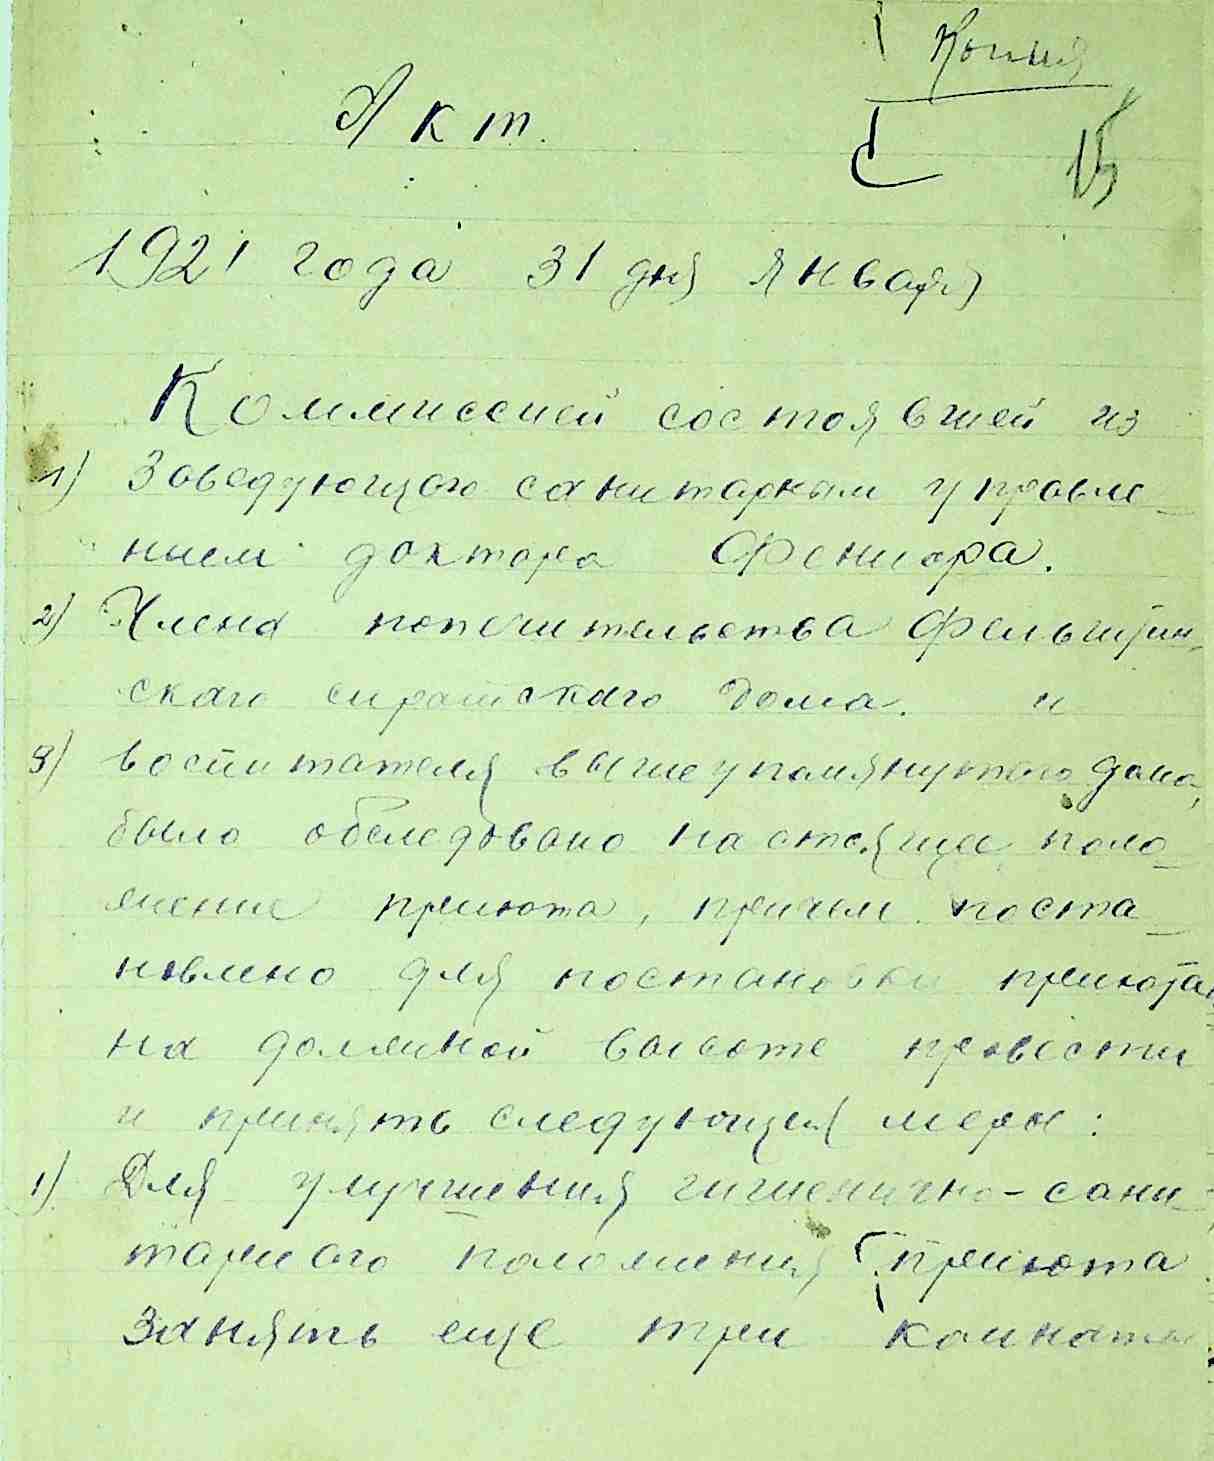 Копия
Акт.
15
1921 года 31 дня января
Коммиссией состоявшей из
1) Заведующого санитарным управле-
нием доктора Фениора.
2) Члена попечительства Фельштин-
ского сиротского дома. и
3) воспитателя вышеупомянутого дома,
было обследовано настоящее поло-
жение приюта, причем поста-
новлено для постановки приюта
на должной высоте провести
и принять следующия меры:
1) Для улучшения гигиенично-сани-
тарного положения приюта
занять еще три комнаты